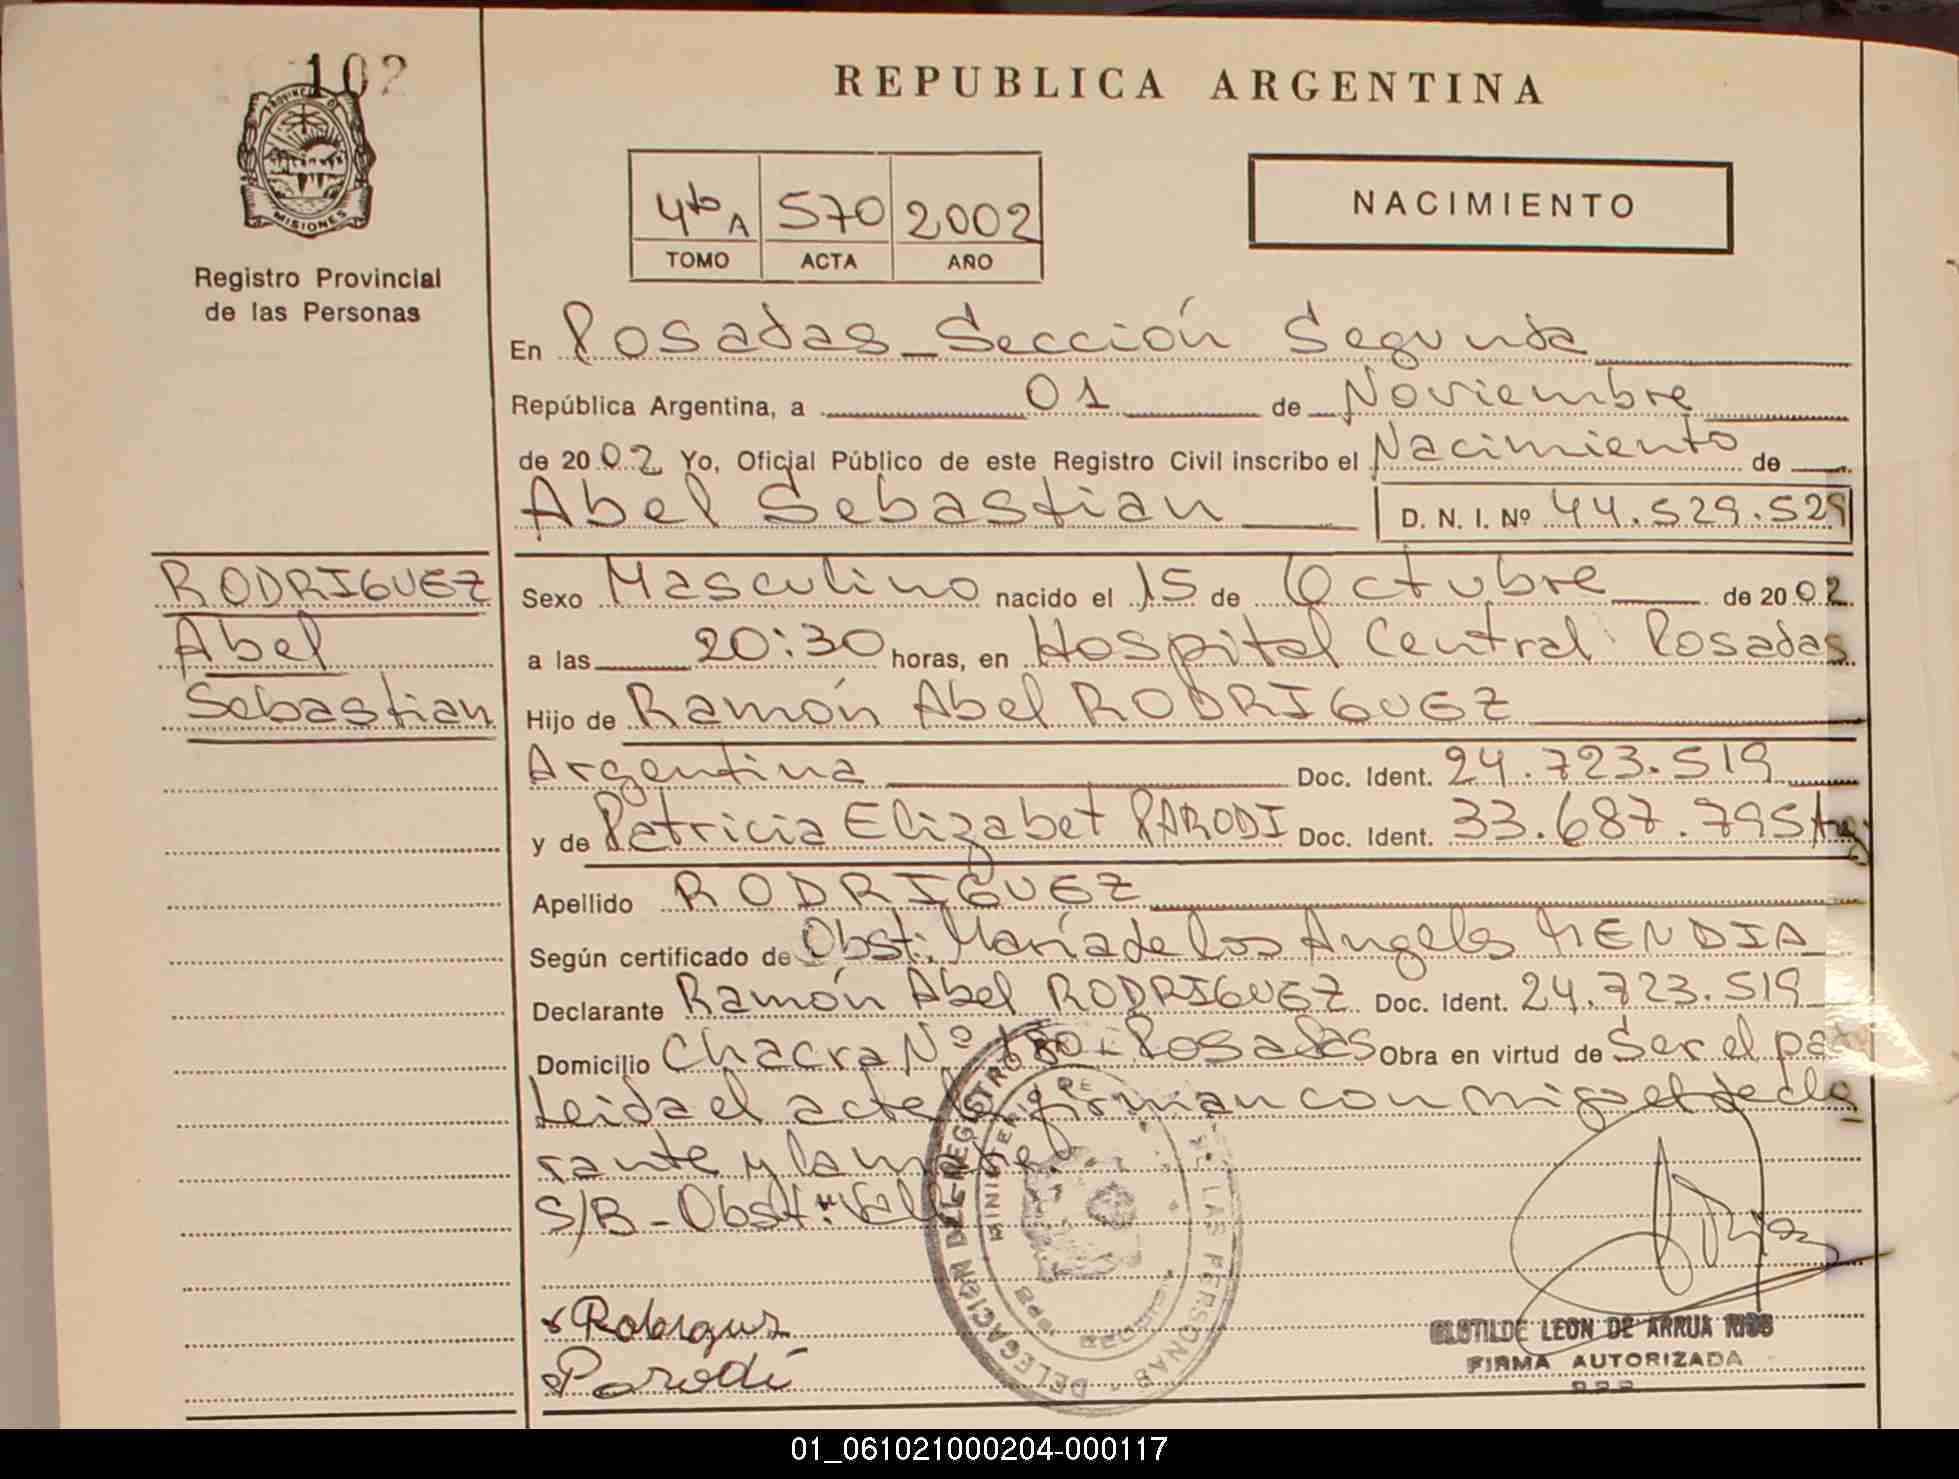 102
PROVINCIA DE
MISIONES
Registro Provincial
de las Personas
REPUBLICA ARGENTINA
4to A 570 2002
TOMO ACTA AÑO
NACIMIENTO
En Posadas - Sección Segunda
República Argentina, a 01 de Noviembre
de 2002 Yo, Oficial Público de este Registro Civil inscribo el Nacimiento de
Abel Sebastian D. N. I. Nº 44.529.529
RODRIGUEZ
Abel
Sebastian
Sexo Masculino nacido el 15 de Octubre de 2002
a las 20:30 horas, en Hospital Central Posadas
Hijo de Ramón Abel RODRIGUEZ
Argentina Doc. Ident. 24.723.519
y de Patricia Elizabet PARODI Doc. Ident. 33.687.795 Arg
Apellido RODRIGUEZ
Según certificado de Obst. María de los Angeles MENDIA
Declarante Ramón Abel RODRIGUEZ Doc. Ident. 24.723.519
Domicilio Chacra Nº 180 - Posadas Obra en virtud de Ser el pa
Leida el acta la firman conmigo el decla
rante y la madre.
S/B - Obst. Val
DELEGACIÓN DEL REGISTRO DE LAS PERSONAS
MINISTERIO DE
Rodriguez
Parodi
CLOTILDE LEON DE ARRUA RIOS
FIRMA AUTORIZADA
R.P.P.
01_061021000204-000117